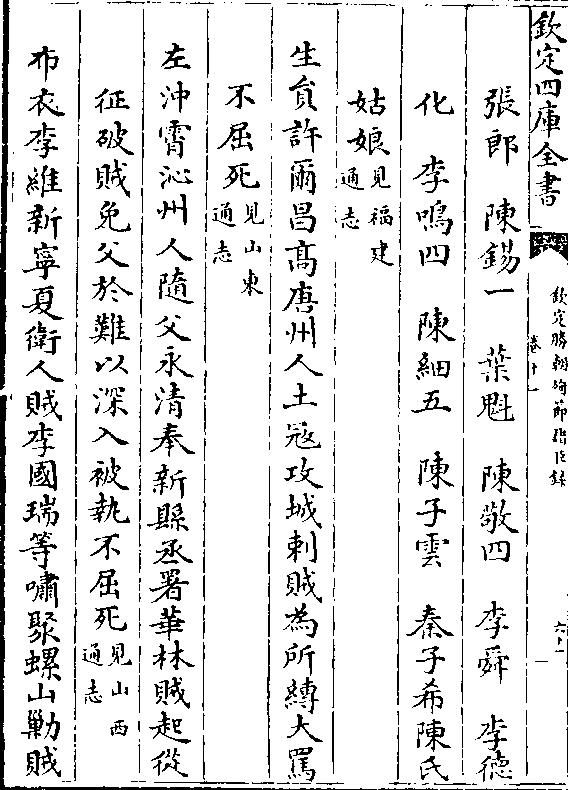 欽定四庫全書
欽定勝朝殉節諸臣錄
卷十一
六十一
張郎　陳錫一　葉魁　陳敬四　李舜　李德
化　李鳴四　陳細五　陳子雲　秦子希陳氏
姑娘見福建通志
生員許爾昌髙唐州人土冦攻城刺賊為所縛大罵
不屈死見山東通志
左沖霄沁州人隨父永清奉新縣丞署華林賊起從
征破賊免父於難以深入被執不屈死見山西通志
布衣李維新寧夏衛人賊李國瑞等嘯聚螺山勦賊